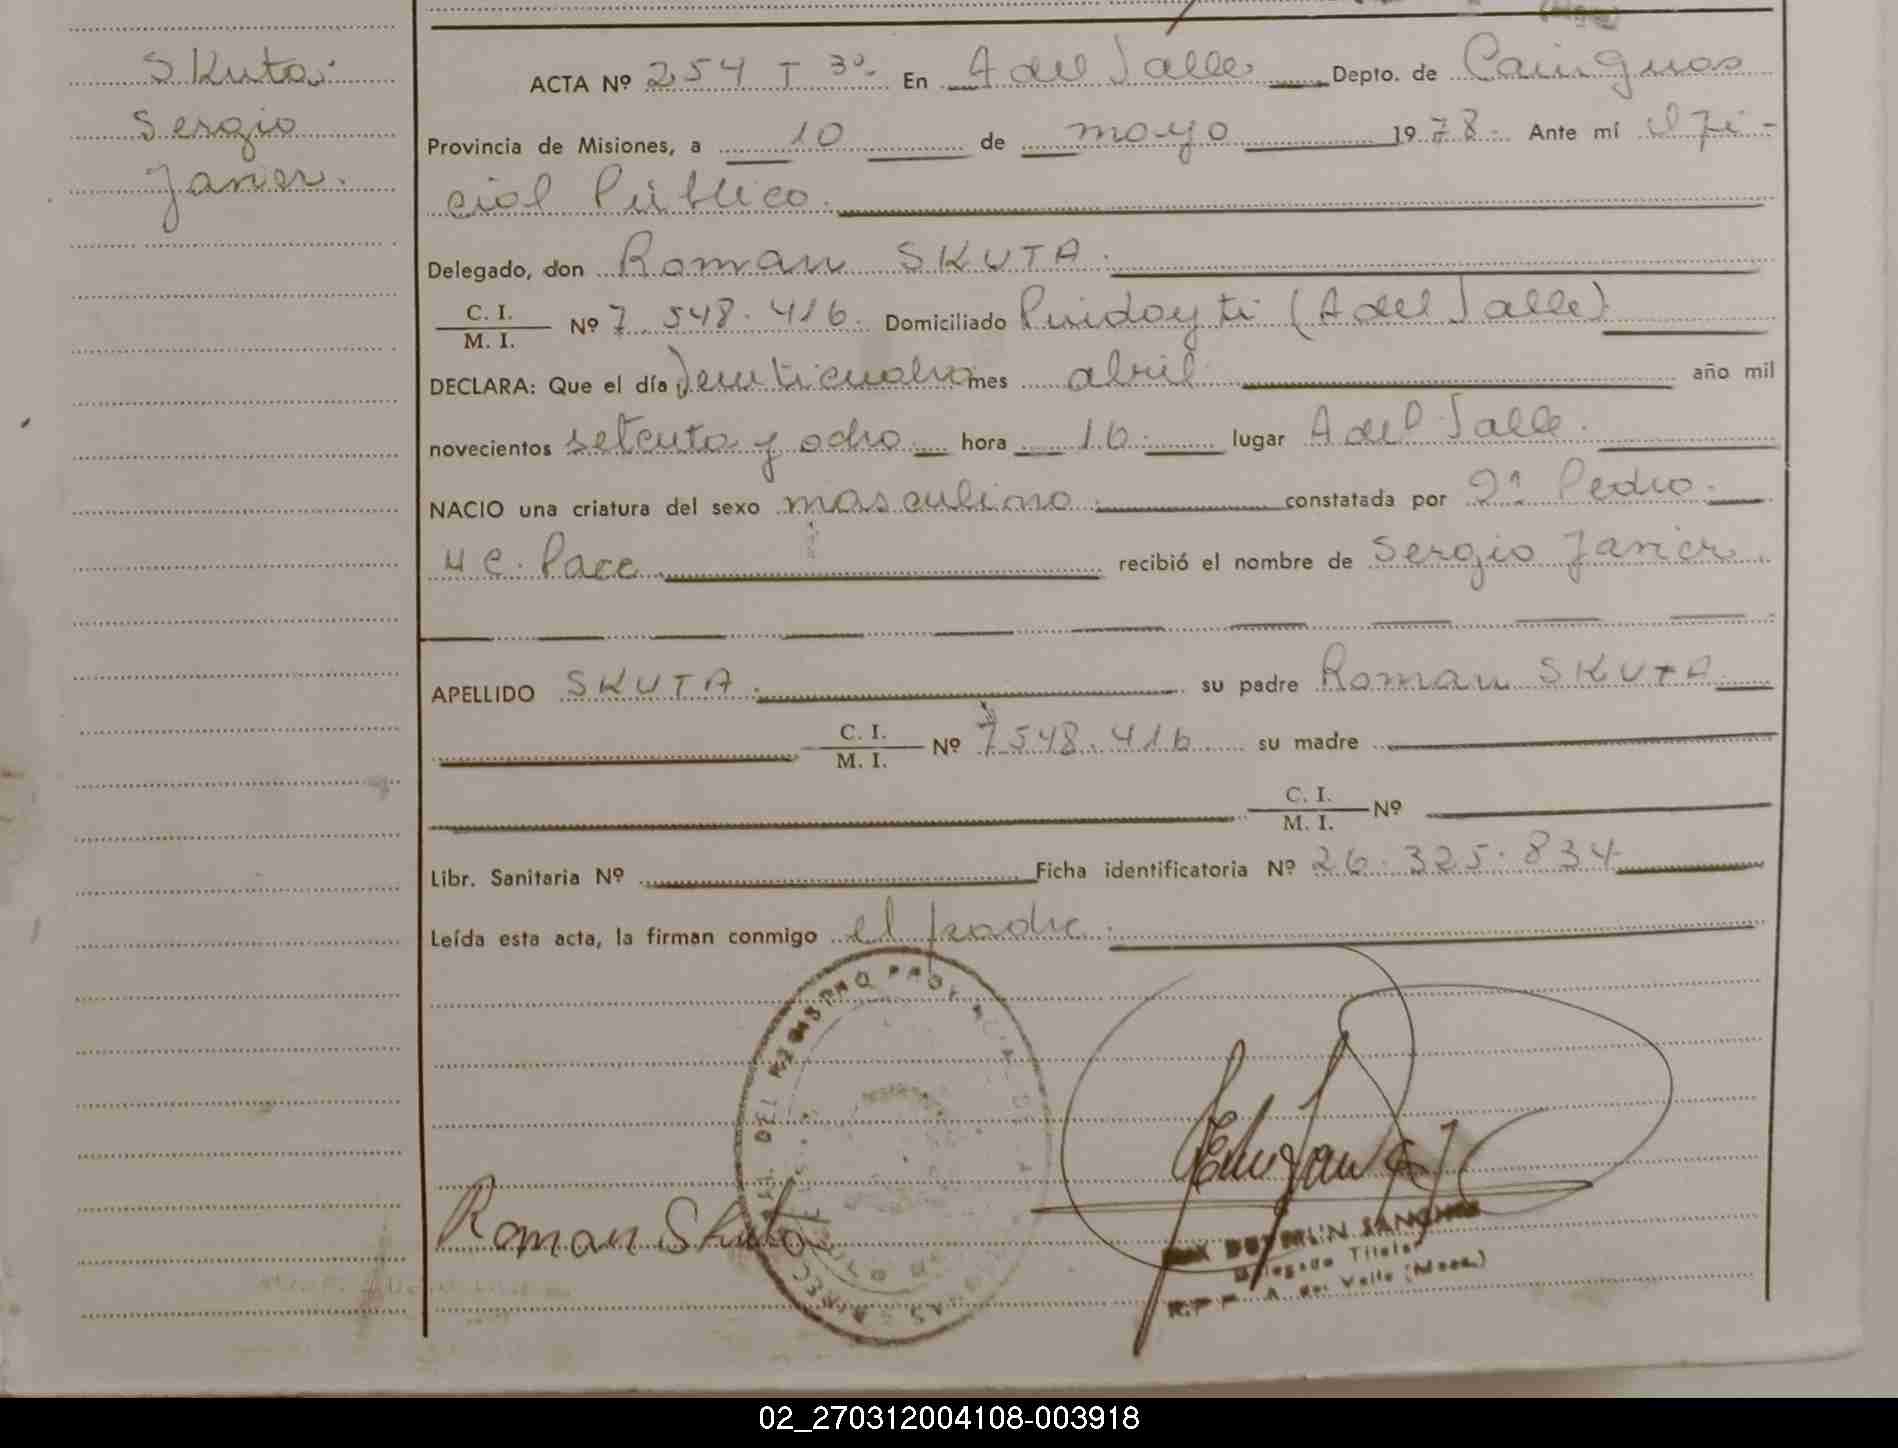 Skuta.
Sergio
Javier.
ACTA Nº 254 T 3º En A del Valle Depto. de Cainguas
Provincia de Misiones, a 10 de mayo 1978. Ante mí ofi-
cial Público.
Delegado, don Roman SKUTA.
C. I.
M. I. Nº 7.548.416. Domiciliado Pindoyti (A del Valle)
DECLARA: Que el día Venticuatro mes abril año mil
novecientos setenta y ocho. hora 16. lugar A del Valle.
NACIO una criatura del sexo masculino. constatada por Pedro
Pace recibió el nombre de Sergio Javier
APELLIDO SKUTA. su padre Roman SKUTA
C. I.
M. I. Nº 7548.416 su madre
C. I.
M. I. Nº
Libr. Sanitaria Nº Ficha identificatoria Nº 26.325.834
Leída esta acta, la firman conmigo el padre.
Roman Skuta
SANCHEZ
Delegado Titular
A. del Valle (Mnes.)
02_270312004108-003918